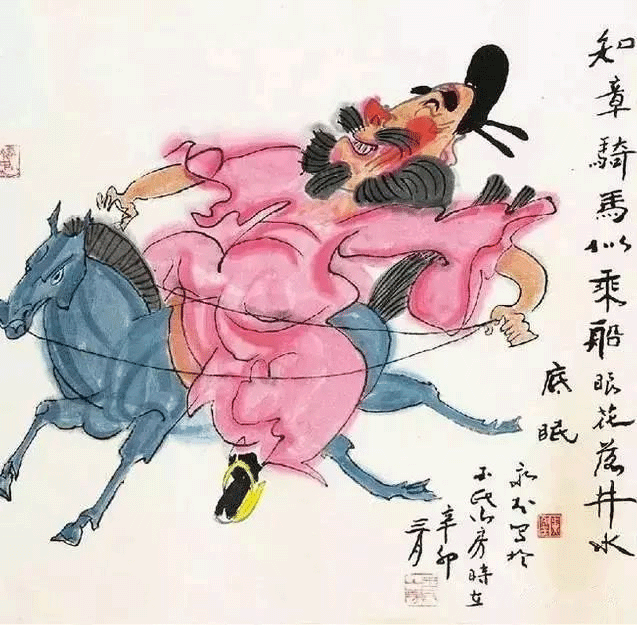 知章騎馬似乘船眼花落井水
底眠
永玉写於
玉氏山房時在
辛卯
三月